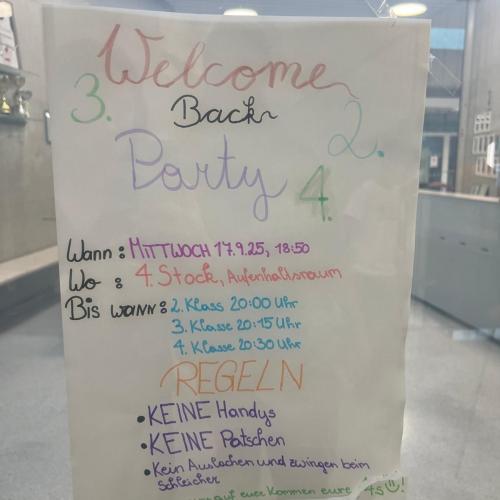 Welcome
Back
3.
2.
Party
4.
Wann: MITTWOCH 17.9.25, 18:50
Wo: 4. Stock, Aufenhaltsraum
Bis wann: 2. Klass 20:00 Uhr
3. Klasse 20:15 Uhr
4. Klasse 20:30 Uhr
REGELN
• KEINE Handys
• KEINE Patschen
• Kein Auslachen und zwingen beim
Schleicher
auf euer Kommen eure 4s!